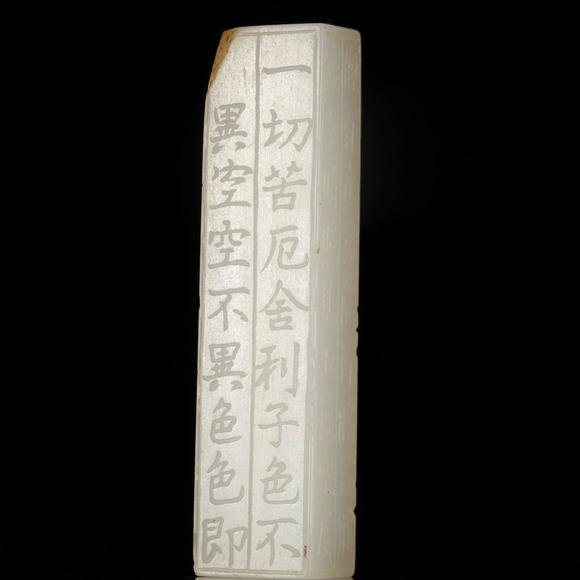 一切苦厄舍利子色不
異空空不異色色即